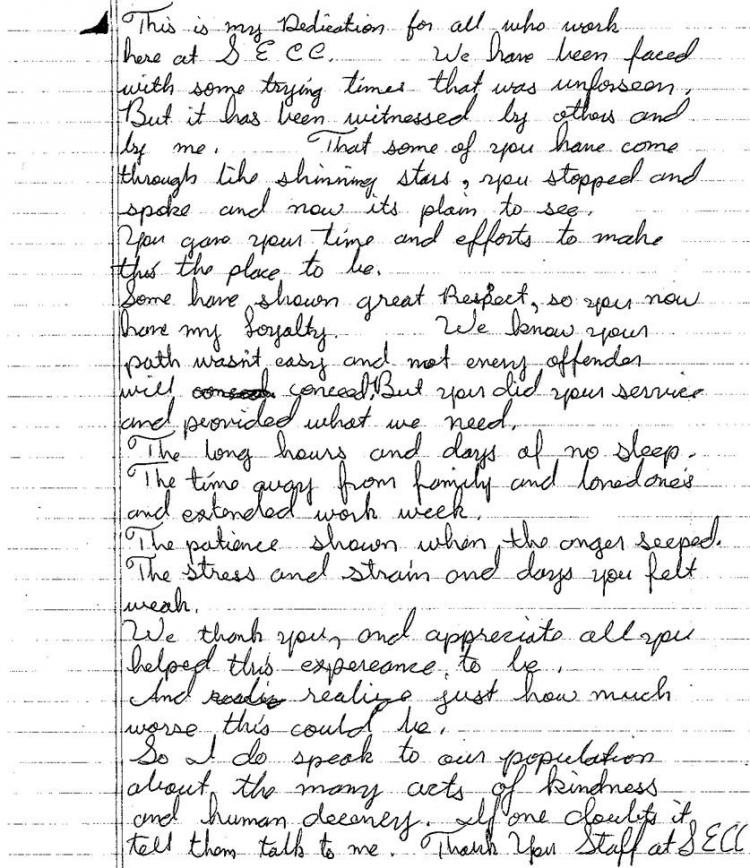 This is my Dedication for all who work
here at S E C C. We have been faced
with some trying times that was unforseen.
But it has been witnessed by others and
by me. That some of you have come
through like shinning stars, you stopped and
spoke and now its plain to see.
You gave your time and efforts to make
this the place to be.
Some have shown great Respect, so you now
have my Loyalty. We know your
path wasn't easy and not every offender
will conceed. But you did your service
and provided what we need.
The long hours and days of no sleep.
The time away from family and lovedones
and extended work week.
The patience shown when the anger seeped.
The stress and strain and days you felt
weak.
We thank you, and appreciate all you
helped this expereance to be.
And realize just how much
worse this could be.
So I do speak to our population
about the many acts of kindness
and human decency. If one doubts it
tell them talk to me. Thank You Staff at SECC